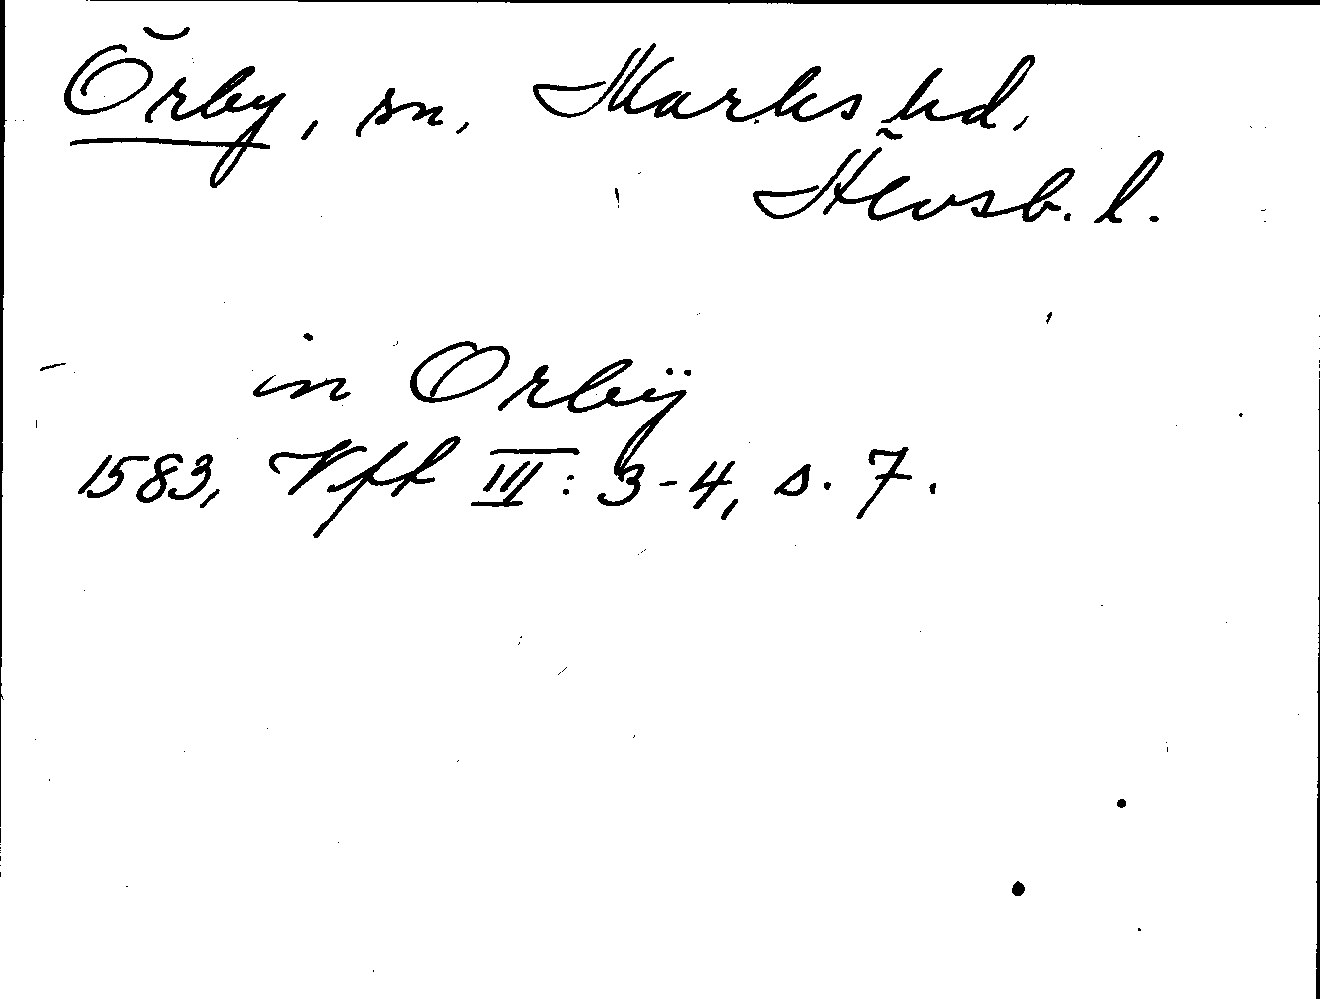 Örby, sn, Marks hd,
Älvsb. l.
in Orbÿ
1583, Vffh III: 3-4, s. 7.